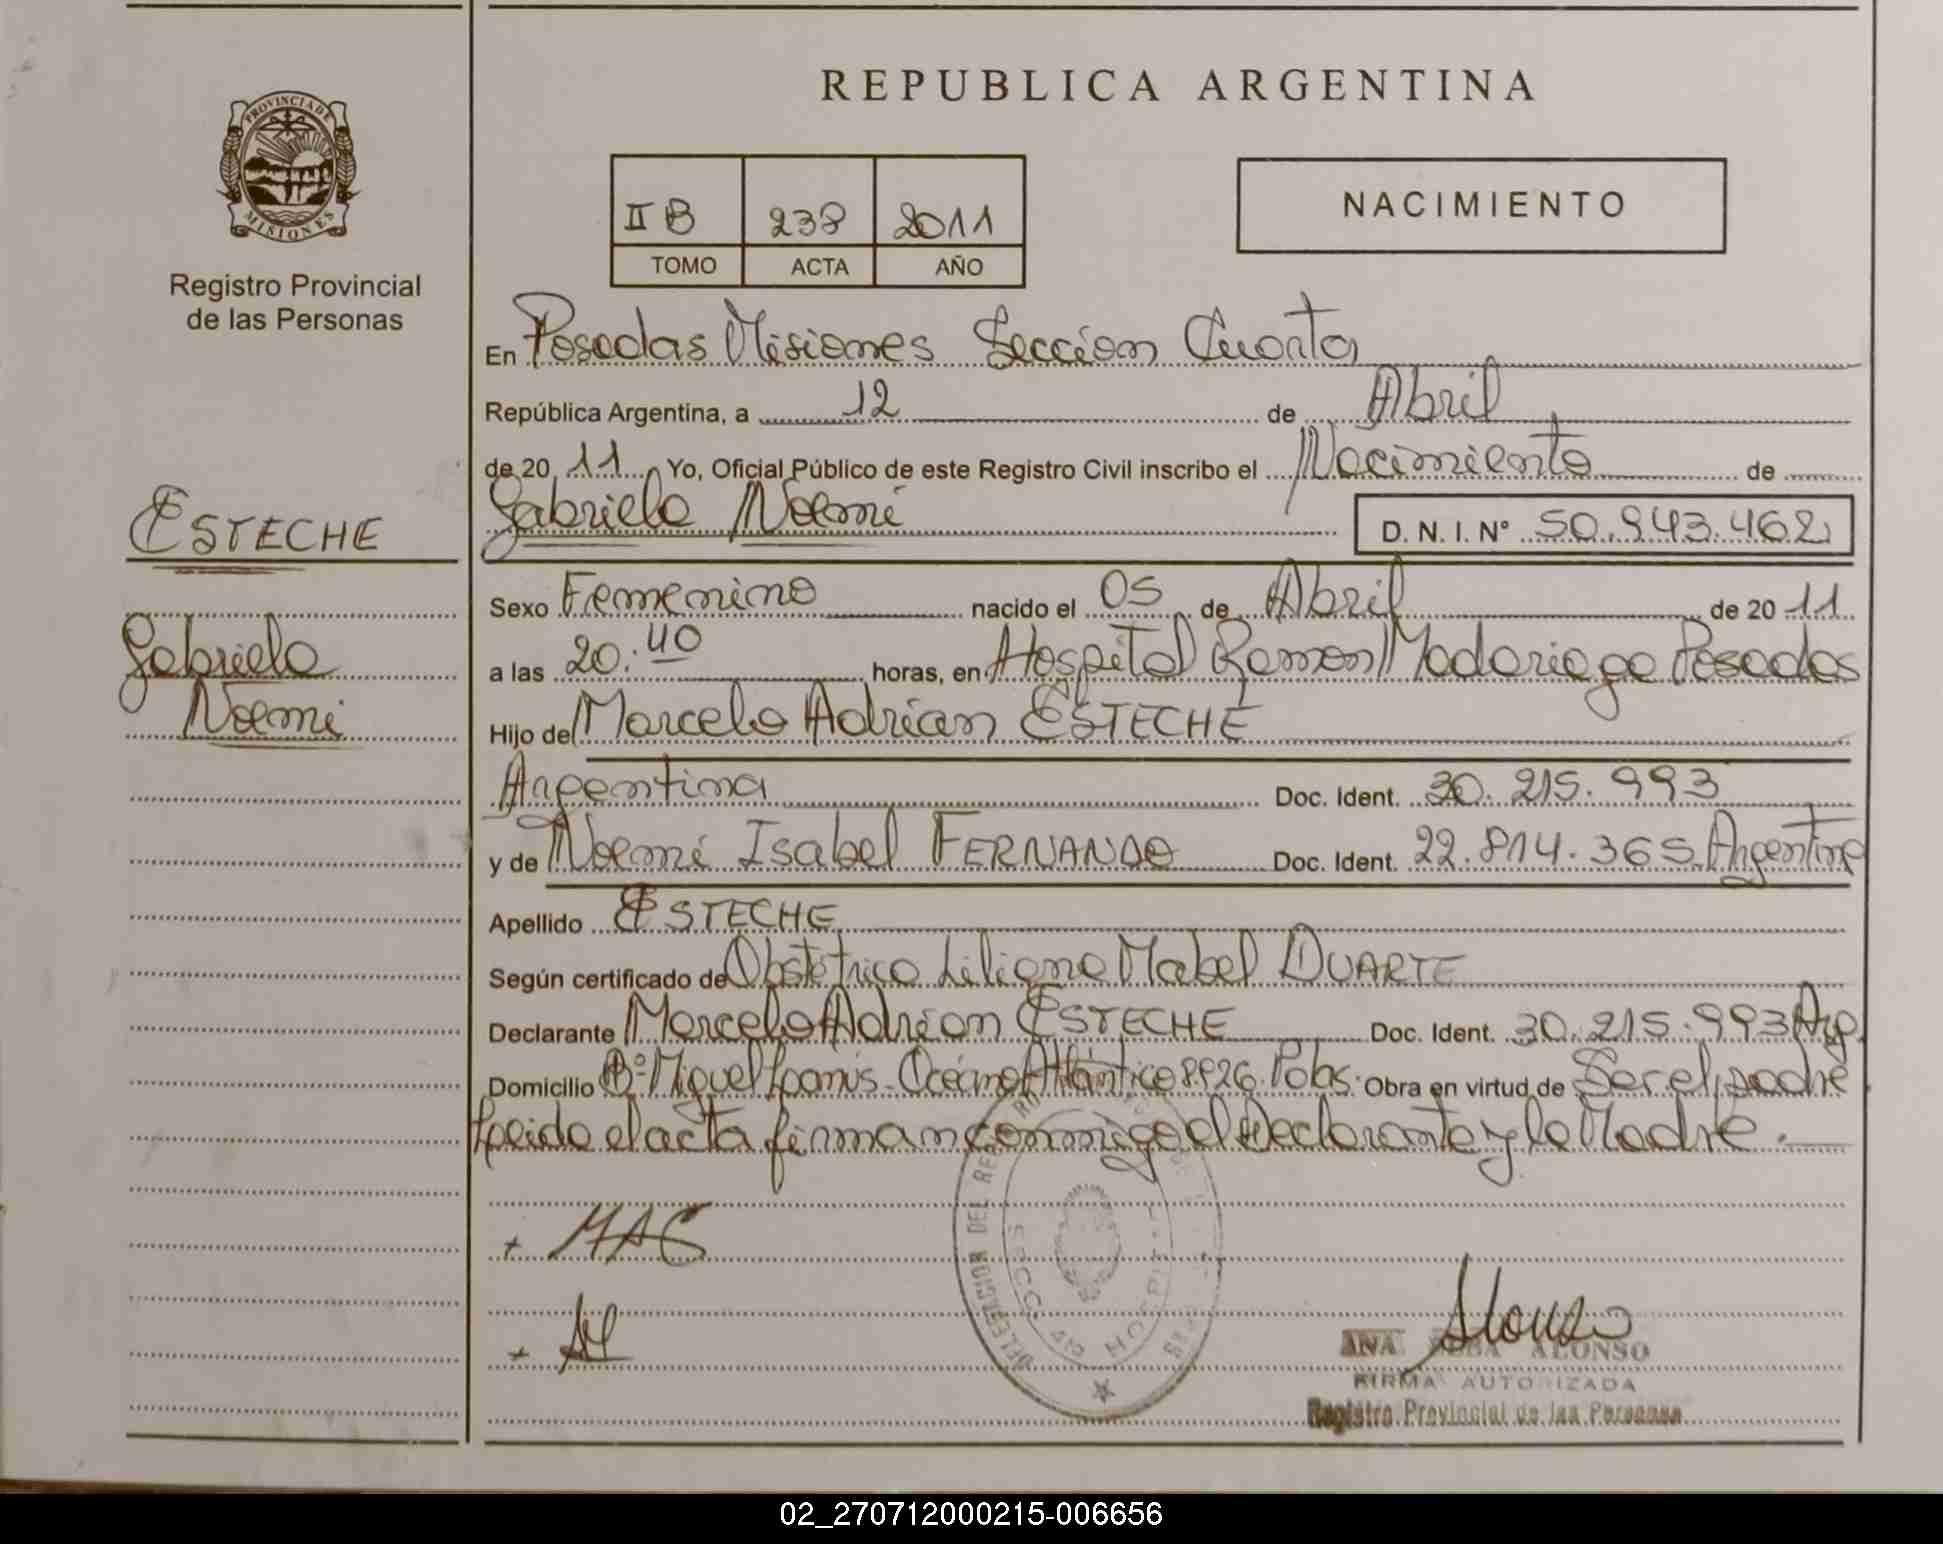 REPUBLICA ARGENTINA
PROVINCIA DE
MISIONES
Registro Provincial
de las Personas
II B 238 2011
TOMO ACTA AÑO
NACIMIENTO
ESTECHE
Gabriela
Noemi
En Posadas Misiones Sección Cuarta
República Argentina, a 12 de Abril
de 20 11 Yo, Oficial Público de este Registro Civil inscribo el Nacimiento de
Gabriela Noemí D. N. I. Nº 50.943.462
Sexo Femenino nacido el 05 de Abril de 20 11
a las 20:40 horas, en Hospital Ramon Madariaga Posadas
Hijo de Marcelo Adrian ESTECHE
Argentina Doc. Ident. 30.215.993
y de Noemí Isabel FERNANDO Doc. Ident. 22.814.365 Argentina
Apellido ESTECHE
Según certificado de Obstétrica Liliana Mabel DUARTE
Declarante Marcelo Adrian ESTECHE Doc. Ident. 30.215.993 Arg.
Domicilio Bº Miguel Lanús - Océano Atlántico 8926. Pdas. Obra en virtud de Ser el padre
Leido el acta firman conmigo el Declarante y la Madre.
DELEGACION DEL
SECC. 4ª HOSPITAL
Alonso
ANA ALONSO
FIRMA AUTORIZADA
Registro Provincial de las Personas
02_270712000215-006656